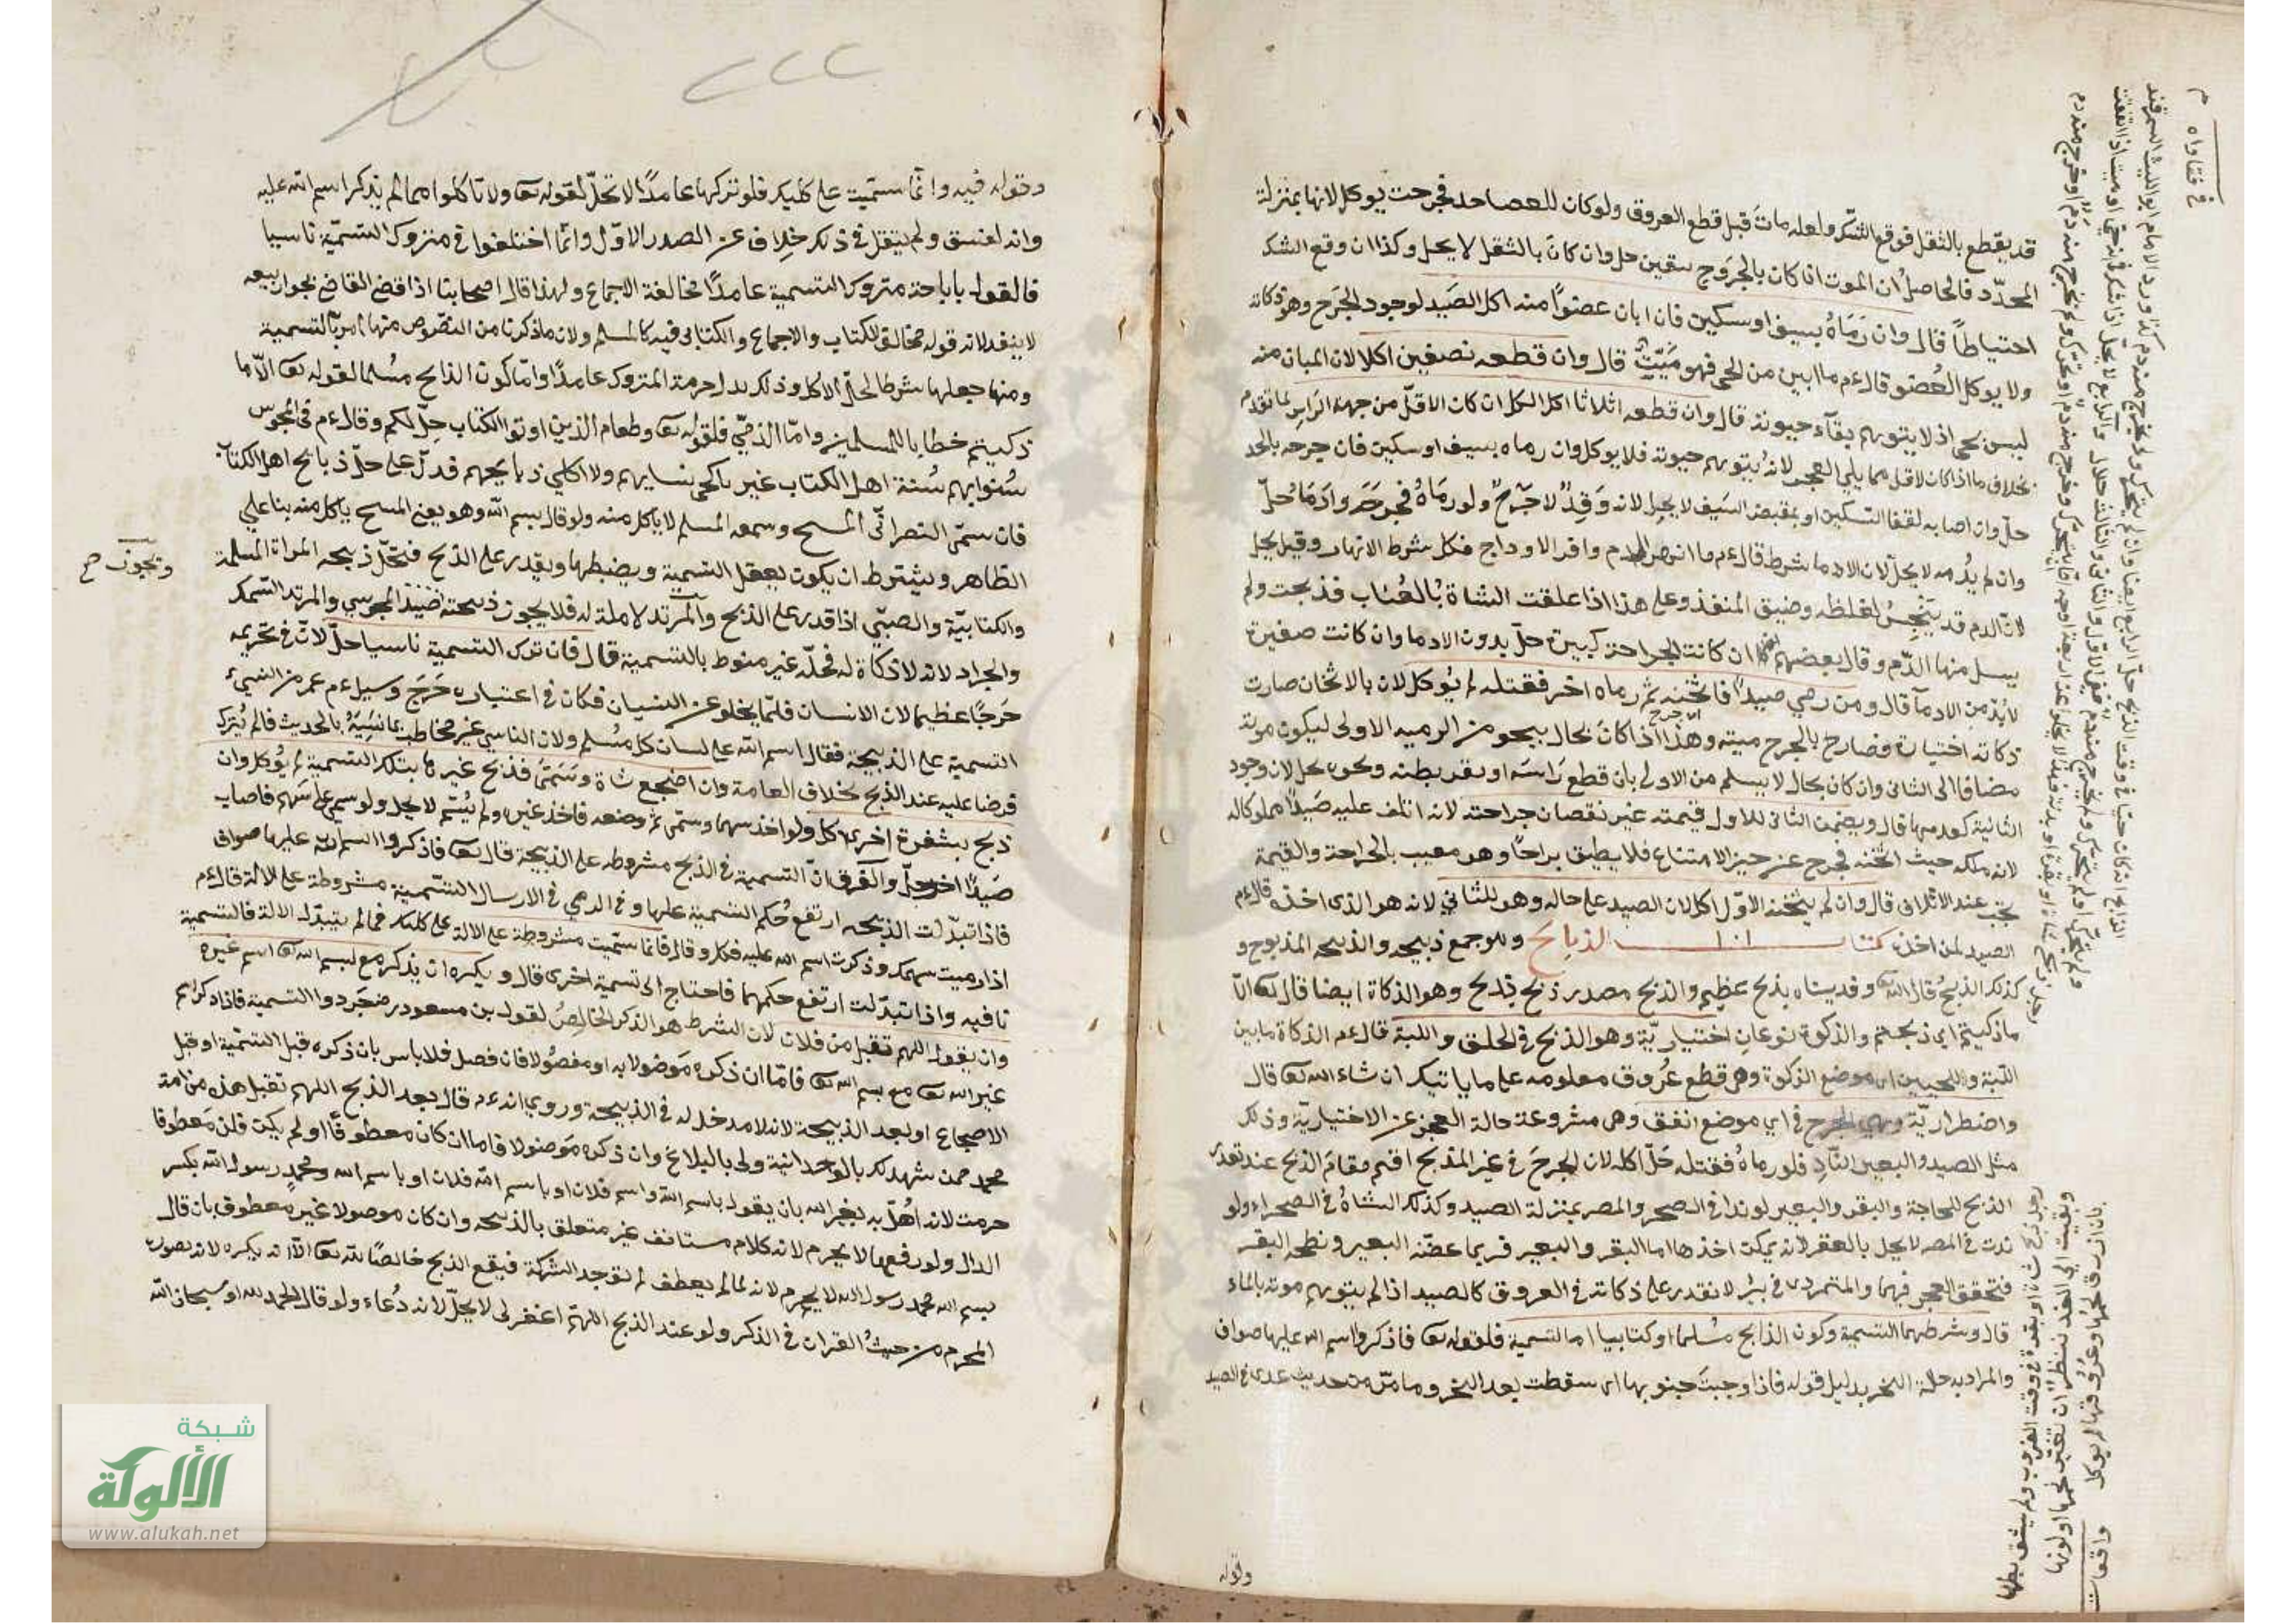 قد يقطع بالثقل فوقع الشك ولعله مات قبل قطع العروق ولو كان للعصا حد فجرحت يوكل لانها بمنزلة
المحدد فالحاصل ان الموت اذا كان بالجروح بيقين حل وان كان بالثقل لا يحل وكذا ان وقع الشك
احتياطاً قال وان رماه بسيف او سكين فان ابان عضواً منه اكل الصيد لوجود الجرح وهو ذكاته
ولا يوكل العضو قال ءم ما ابين من الحي فهو ميت قال وان قطعه نصفين اكلا لان المبان منه
ليس بحي اذ لا يتوهم بقآء حيوته قال وان قطعه اثلاثا اكل الكل ان كان الاقل من جهة الراس لما تقدم
بخلاف ما اذا كان الاقل مما يلي العجز لانه يتوهم حيوته فلا يوكل وان رماه بسيف او سكين فان جرحه بالحد
حل وان اصابه لقفا السكين او بمقبض السيف لا يحل لانه وقذ لا جرح ولو رماه فجرحه وادماه حل
وان لم يدمه لا يحل لان الادما شرط قال ءم ما انهر الدم وافر الاوداج فكل شرط الانهار وقيل يحل
لان الدم قد ينحبس لغلظه وضيق المنفذ وعلى هذا اذا علقت الشاة بالعناب فذبحت ولم
يسل منها الدم وقال بعضهم ان كانت الجراحة كبيرة حل بدون الادما وان كانت صغيرة
لا بد من الادمآ قال ومن رمي صيداً فاثخنه ثم رماه اخر فقتله لم يوكل لان بالاثخان صارت
ذكاته اختيارة فصار بالجرح ميته وهذا اذا كان بحال ينجو من الرميه الاولى ليكون موته
مضافا الى الثاني وان كان بحال لا يسلم من الاولى بان قطع راسه او بقر بطنه ونحوه يحل لان وجود
الثانية كعدمها قال ويضمن الثاني للاول قيمته غير نقصان جراحته لانه اتلف عليه صيداً مملوكا له
لانه ملكه حيث اثخنه فخرج عن حيز الامتناع فلا يطيق براحاً وهو معيب بالجراحة والقيمة
تجب عند الاتلاف قال وان لم يثخنه الاول اكل لان الصيد على حاله وهو للثاني لانه هو الذي اخذه قال ءم
الصيد لمن اخذه كتاب الذبايح وهو جمع ذبيحه والذبيحه المذبوح و
كذلك الذبح قال الله تعا وفديناه بذبح عظيم والذبح مصدر ذبح يذبح وهو الذكاة ايضا قال تعا الا
ما ذكيتم اي ذبحتم والذكوة نوعان اختيارية وهو الذبح في الحلق واللبة قال ءم الذكاة ما بين
اللبة واللحيين اي موضع الذكوة وهي قطع عروق معلومه على ما ياتيك ان شاء الله تعا قال
واضطرارية وهي الجرح في اي موضع اتفق وهي مشروعة حالة العجز عن الاختيارية وذلك
مثل الصيد والبعير الناد فلو رماه فقتله حل اكله لان الجرح في غير المذبح اقيم مقام الذبح عند تعذر
الذبح للحاجة والبقر والبعير لو ندا في الصحر والمصر بمنزلة الصيد وكذلك الشاة في الصحراء ولو
ندت في المصر لا يحل بالعقر لانه يمكن اخذها اما البقر والبعير فربما عضه البعير ونطحه البقر
فتحقق العجز فيهما والمتردى في بئر لا نقدر على ذكاته في العروق كالصيد اذا لم يتوهم موته بالماء
قال وشرطهما التسمية وكون الذابح مسلما او كتابيا اما التسمية فلقوله تعا فاذكروا اسم الله عليها صواف
والمراد به حالة النحر بدليل قوله فاذا وجبت جنوبها اي سقطت بعد النحر وما مر من حديث عدى في الصيد
وقوله
في فتاواه
وقوله فيه وانما سميت على كلبك فلو تركها عامداً لا تحل لقوله تعا ولا تاكلوا مما لم يذكر اسم الله عليه
وانه لفسق ولم ينقل في ذلك خلاف عن الصدر الاول وانما اختلفوا في متروك التسمية ناسيا
فالقول باباحة متروك التسمية عامداً مخالفة الاجماع ولهذا قال اصحابنا اذا قضى القاضي بجواز بيعه
لا ينفد لانه قوله مخالف للكتاب والاجماع والكتابي فيه كالمسلم ولان ما ذكرنا من النصوص منها امر بالتسمية
ومنها جعلها شرطا لحل الاكل وذلك يدل حرمة المتروك عامداً واما كون الذابح مسلما لقوله تعا الا ما
ذكيتم خطابا للمسلمين واما الذمي فلقوله تعا وطعام الذين اوتوا الكتاب حل لكم وقال ءم في المجوس
سنوا بهم سنة اهل الكتاب غير ناكحي نسايهم ولا اكلي ذبايحهم فدل على حل ذبايح اهل الكتاب
فان سمى النصراني المسيح وسمعه المسلم لا ياكل منه ولو قال بسم الله وهو يعنى المسيح ياكل منه بنا على
الظاهر ويشترط ان يكون يعقل التسمية ويضبطها ويقدر على الذبح فتحل ذبيحه المراة المسلمة
والكتابية والصبي اذا قدر على الذبح والمرتد لا ملة له فلا يجوز ذبيحته صيد المجوسي والمرتد السمك
وتجوز صح
والجراد لانه لا ذكاة له فحله غير منوط بالتسمية قال فان ترك التسمية ناسيا حل لان في تحريمه
حرجا عظيما لان الانسان قلما يخلو عن النسيان فكان في اعتباره حرج وسيل ءم عمن نسي
التسمية على الذبيحة فقال اسم الله على لسان كل مسلم ولان الناسي غير مخاطب بما نسيه بالحديث فلم يترك
فرضا عليه عند الذبح بخلاف العامد وان اضجع شاة وسمى فذبح غيرها بتلك التسمية لم يوكل وان
ذبح بشفرة اخرى اكل ولو اخذ سهما وسمى ثم وضعه فاخذ غيره ولم يسم لا يحل ولو سمى على سهم فاصاب
صيداً اخر حل والفرق ان التسمية في الذبح مشروطه على الذبيحة قال تعا فاذكروا اسم الله عليها صواف
فاذا تبدلت الذبيحه ارتفع حكم التسمية عليها وفي الرمي في الارسال التسمية مشروطة على الالة قال ءم
اذا رميت سهمك وذكرت اسم الله عليه فكل وقال فانما سميت مشروطة على الالة على كلبك فما لم يتبدل الالة فالتسمية
نافيه واذا تبدلت ارتفع حكمهما فاحتاج الى تسمية اخرى قال ويكره ان يذكر مع اسم الله تعا اسم غيره
وان يقول اللهم تقبل من فلان لان الشرط هو الذكر الخالص لقول بن مسعود رضى جردوا التسمية فاذا ذكر اسم
غير الله تعا مع بسم الله تعا فاما ان ذكره موصولا به او مفصولا فان فصل فلا باس بان ذكره قبل التسمية او قبل
الاضجاع او بعد الذبيحة لانه لا مدخل له في الذبيحة وروي انه ءم قال بعد الذبح اللهم تقبل هذه من امة
محمد ممن شهد لك بالوحدانية ولي بالبلاغ وان ذكره موصولا فاما ان كان معطوفاً او لم يكن فان معطوفا
حرمت لانه اهل به لغير الله بان يقول باسم الله واسم فلان او باسم الله فلان او باسم الله ومحمد رسول الله بكسر
الدال ولو رفعها لا يحرم لانه كلام مستانف غير متعلق بالذبيحه وان كان موصولا غير معطوف بان قال
بسم الله محمد رسول الله لا يحرم لانه لما لم يعطف لم توجد الشركة فيقع الذبح خالصا لله تعا الا انه يكره لانه بصورة
المحرم من حيث القران في الذكر ولو عند الذبح اللهم اغفر لى لا يحل لانه دعاء ولو قال الحمد لله او سبحان الله
شبكة
الألوكة
www.alukah.net